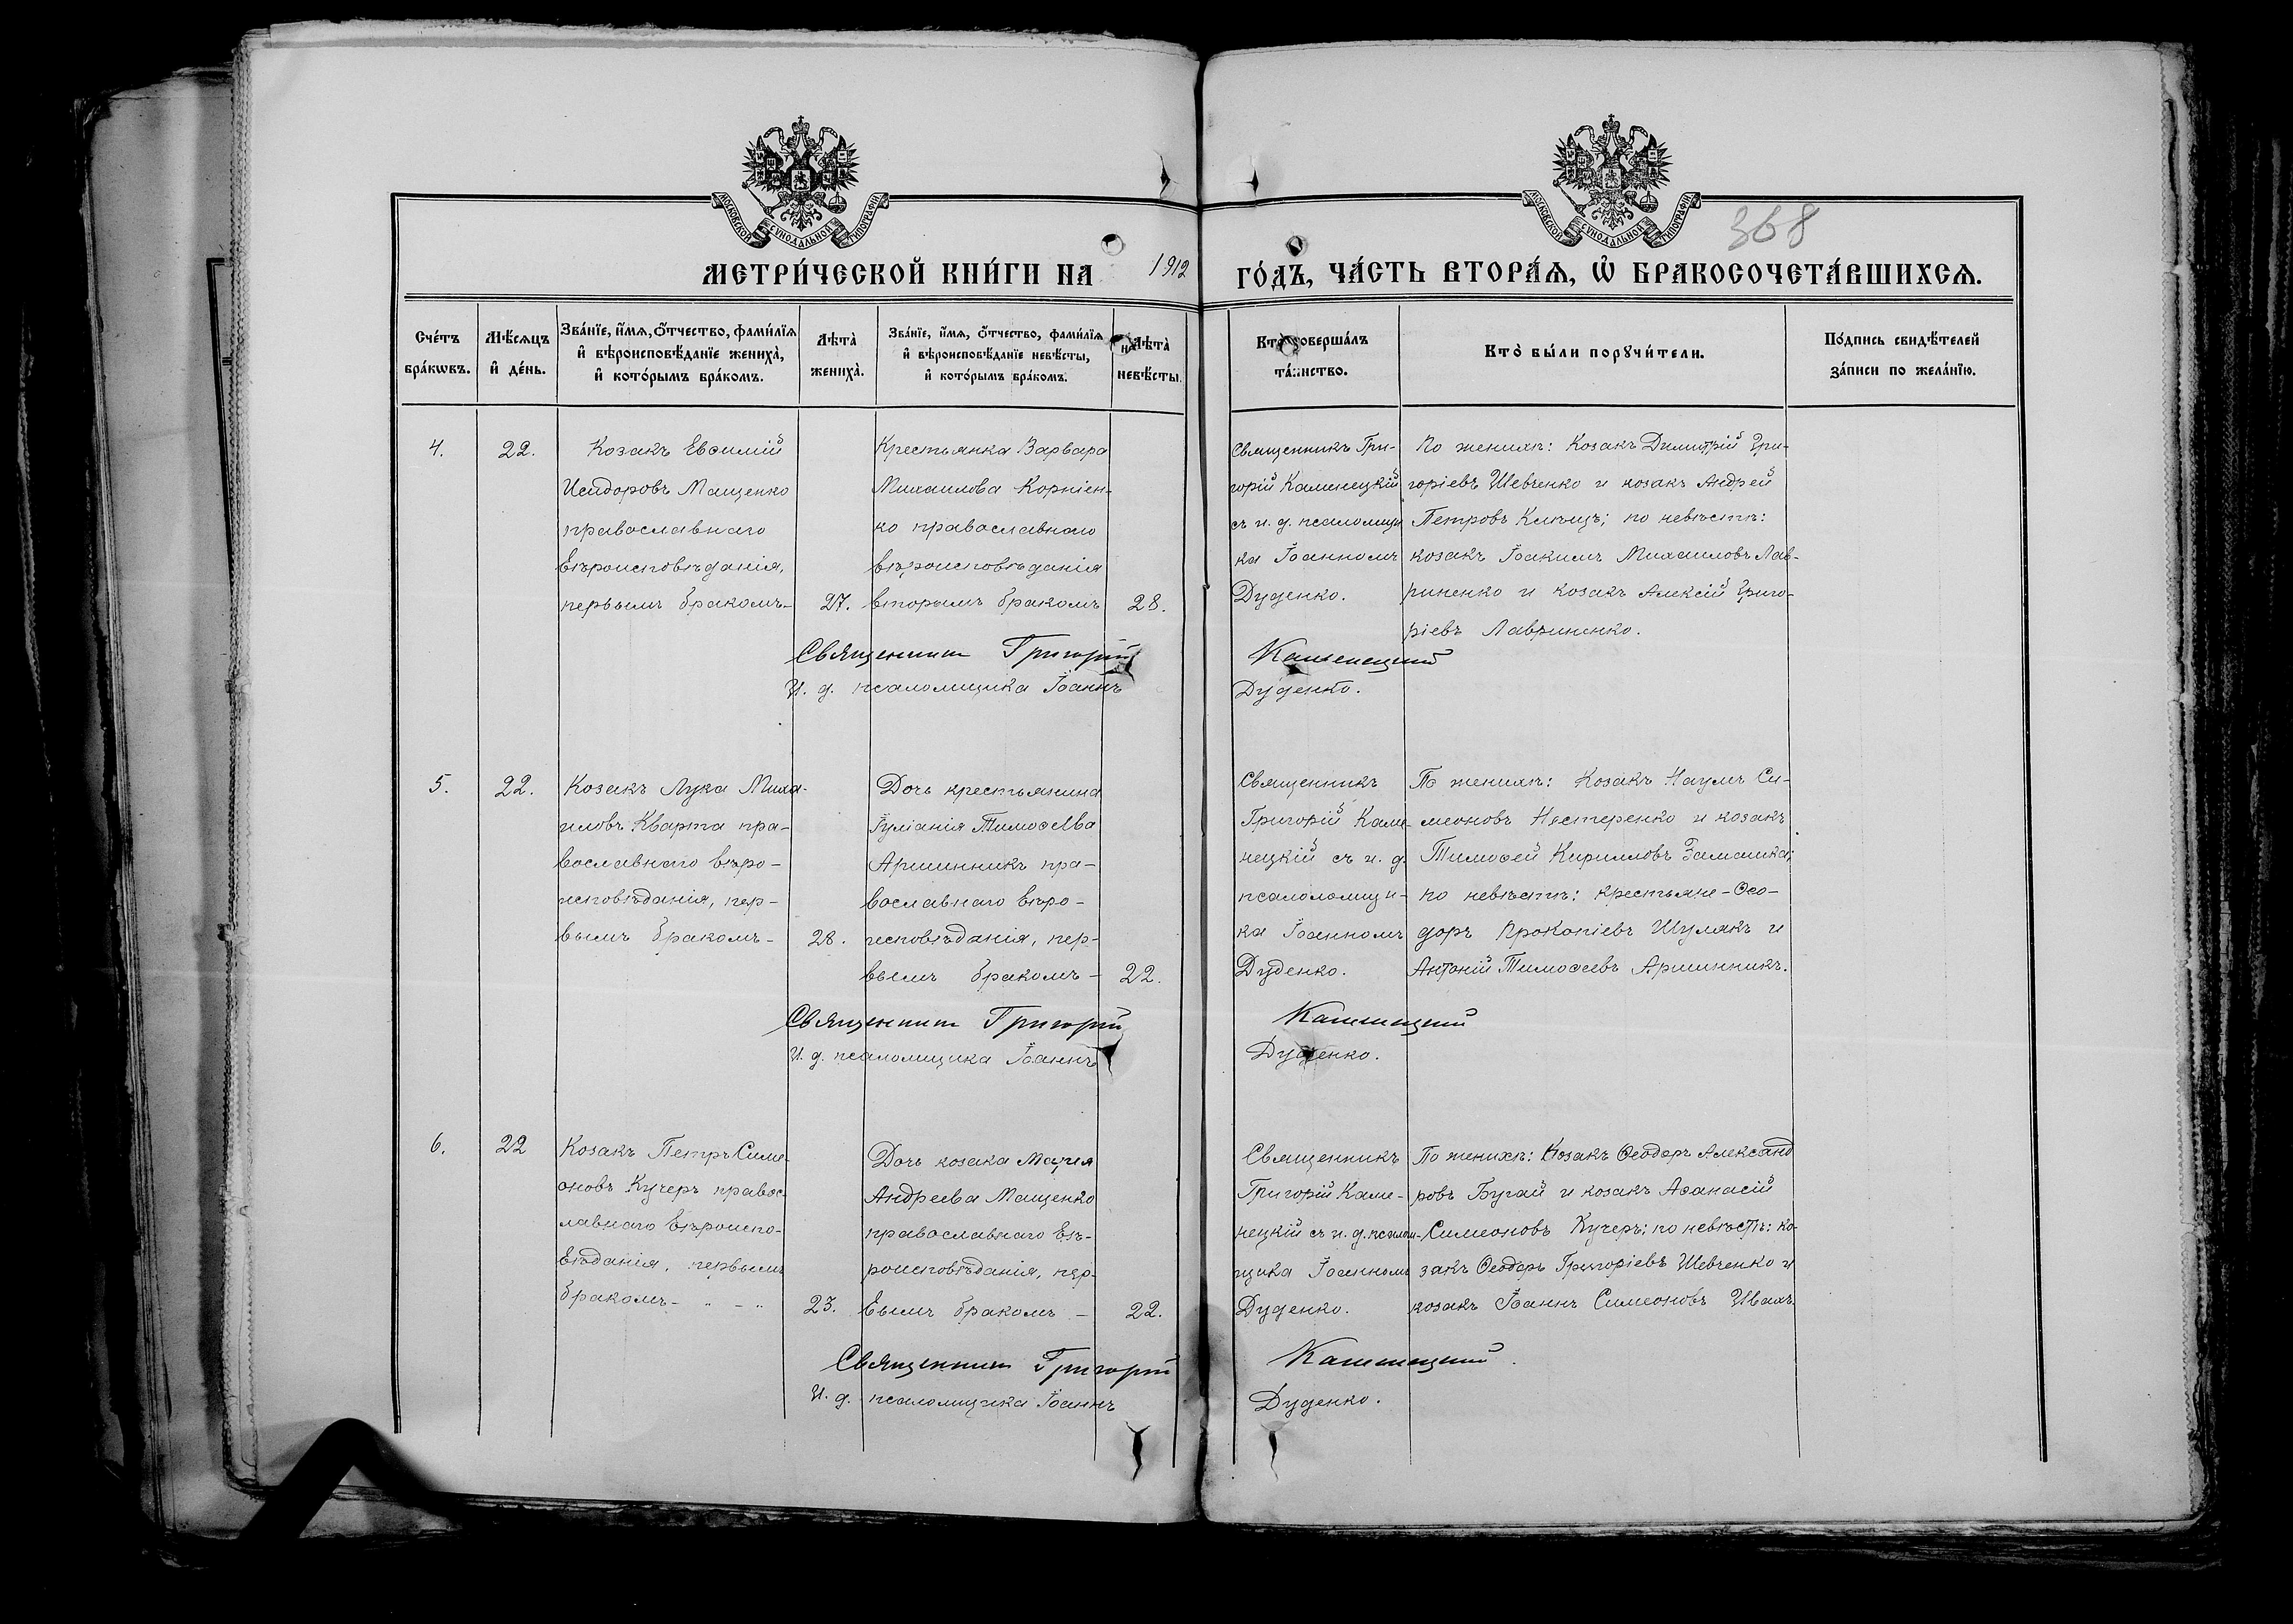 МОСКОВСКОЙ СѴНОДАЛЬНОЙ ТИПОГРАФІИ
МОСКОВСКОЙ СѴНОДАЛЬНОЙ ТИПОГРАФІИ
368
МЕТРИ́ЧЕСКОЙ КНИ́ГИ НА 1912 ГО́ДЪ, ЧА́СТЬ ВТОРА́Ѧ, Ѡ҆ БРАКОСОЧЕТА́ВШИХСѦ.
Сче́тъ бра́кѡвъ.
Мѣ́сяцъ и҆ де́нь.
Зва́нїе, и҆́мѧ, ѻ҆́тчество, фами́лїѧ
и҆ вѣроисповѣ́данїе жениха̀,
и҆ кото́рымъ бра́комъ.
Лѣта̀ жениха̀.
Зва́нїе, и҆́мѧ, ѻ҆́тчество, фами́лїѧ
и҆ вѣроисповѣ́данїе невѣ́сты,
и҆ кото́рымъ бра́комъ.
Лѣта̀ невѣ́сты.
Кто̀ соверша́лъ та́инство.
Кто̀ бы́ли порꙋчи́тели.
По́дпись свидѣ́телей
за́писи по жела́нїю.
4.
22.
Козакъ Евѳимій
Исидоровъ Мащенко
православнаго
вѣроисповѣданія,
первымъ бракомъ-
27.
Крестьянка Варвара
Михаилова Корніен-
ко православнаго
вѣроисповѣданія
вторымъ бракомъ
28.
Священникъ Гри-
горій Каменецкій
съ и. д. псаломщи
ка Іоанномъ
Дуденко.
По женихѣ: Козакъ Димитрій Гри-
горіевъ Шевченко и козакъ Андрей
Петровъ; по невѣстѣ:
козакъ Іоакимъ Михаиловъ Лав-
риненко и козакъ Алексій Григо-
ріевъ Лавриненко.
Священникъ Григорій Каменецкій
И. д. псаломщика Іоаннъ Дуденко.
5.
22.
Козакъ Лука Миха-
иловъ Кварта пра-
вославнаго вѣро-
исповѣданія, пер-
вымъ бракомъ-
28.
Дочь крестьянина
Іуліанія Тимоѳева
Аршинникъ пра-
вославнаго вѣро-
исповѣданія, пер-
вымъ бракомъ-
22.
Священникъ
Григорій Каме-
нецкій съ и. д.
псаломщи-
ка Іоанномъ
Дуденко.
По женихѣ: Козакъ Наумъ Си-
меоновъ Нестеренко и козакъ
Тимоѳей Кирилловъ Замашка;
по невѣстѣ: крестьяне-Ѳео-
доръ Прокопіевъ Шулякъ и
Антоній Тимоѳеевъ Аршинникъ.
Священникъ Григорій Каменецкій
И. д. псаломщика Іоаннъ Дуденко.
6.
22
Козакъ Петръ Симе-
оновъ Кучеръ правос-
лавнаго вѣроиспо-
вѣданія, первымъ
бракомъ-
23.
Дочь козака Марія
Андреева Мащенко
православнаго вѣ-
роисповѣданія, пер-
вымъ бракомъ -
22.
Священникъ
Григорій Каме-
нецкій съ и. д. псалом-
щика Іоанномъ
Дуденко.
По женихѣ: Козакъ Ѳеодоръ Александ
ровъ Бугай и козакъ Аѳанасій
Симеоновъ Кучеръ; по невѣстѣ: ко-
закъ Ѳеодоръ Григоріевъ Шевченко и
козакъ Іоаннъ Симеоновъ Ивахъ.
Священникъ Григорій Каменецкій.
И. д. псаломщика Іоаннъ Дуденко.